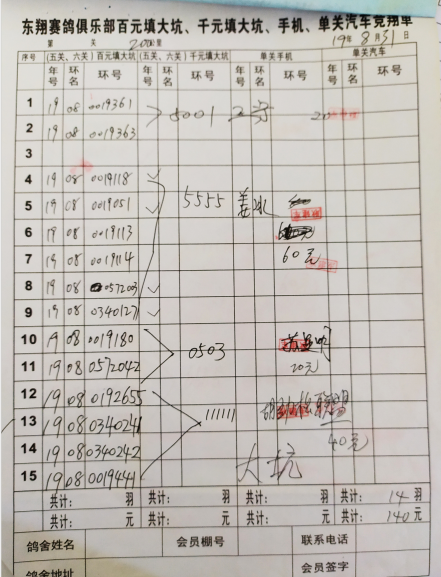 东翔赛鸽俱乐部百元填大坑、千元填大坑、手机、单关汽车竞翔单
第 关 200公里 19年8月31日
序号 (五关、六关)百元填大坑 (五关、六关)千元填大坑 单关手机 单关汽车
年号 环名 环号 年号 环名 环号 年号 环名 环号 年号 环名 环号
1 19 08 0019361
5001
2 19 08 0019363
3
4 19 08 0019118
5 19 08 0019051 5555
6 19 08 0019113
7 19 08 0019114 60元
8 19 08 0057203
9 19 08 0340127
10 19 08 0019180 0503
11 19 08 0572042 20元
12 19 08 0192655
13 19 08 0340241 111111
40元
14 19 08 0340242
大坑
15 19 08 0019441
共计: 羽 共计: 羽 共计: 羽 共计: 14 羽
共计: 元 共计: 元 共计: 元 共计: 140 元
鸽舍姓名 会员棚号 联系电话
鸽舍地址 会员签字